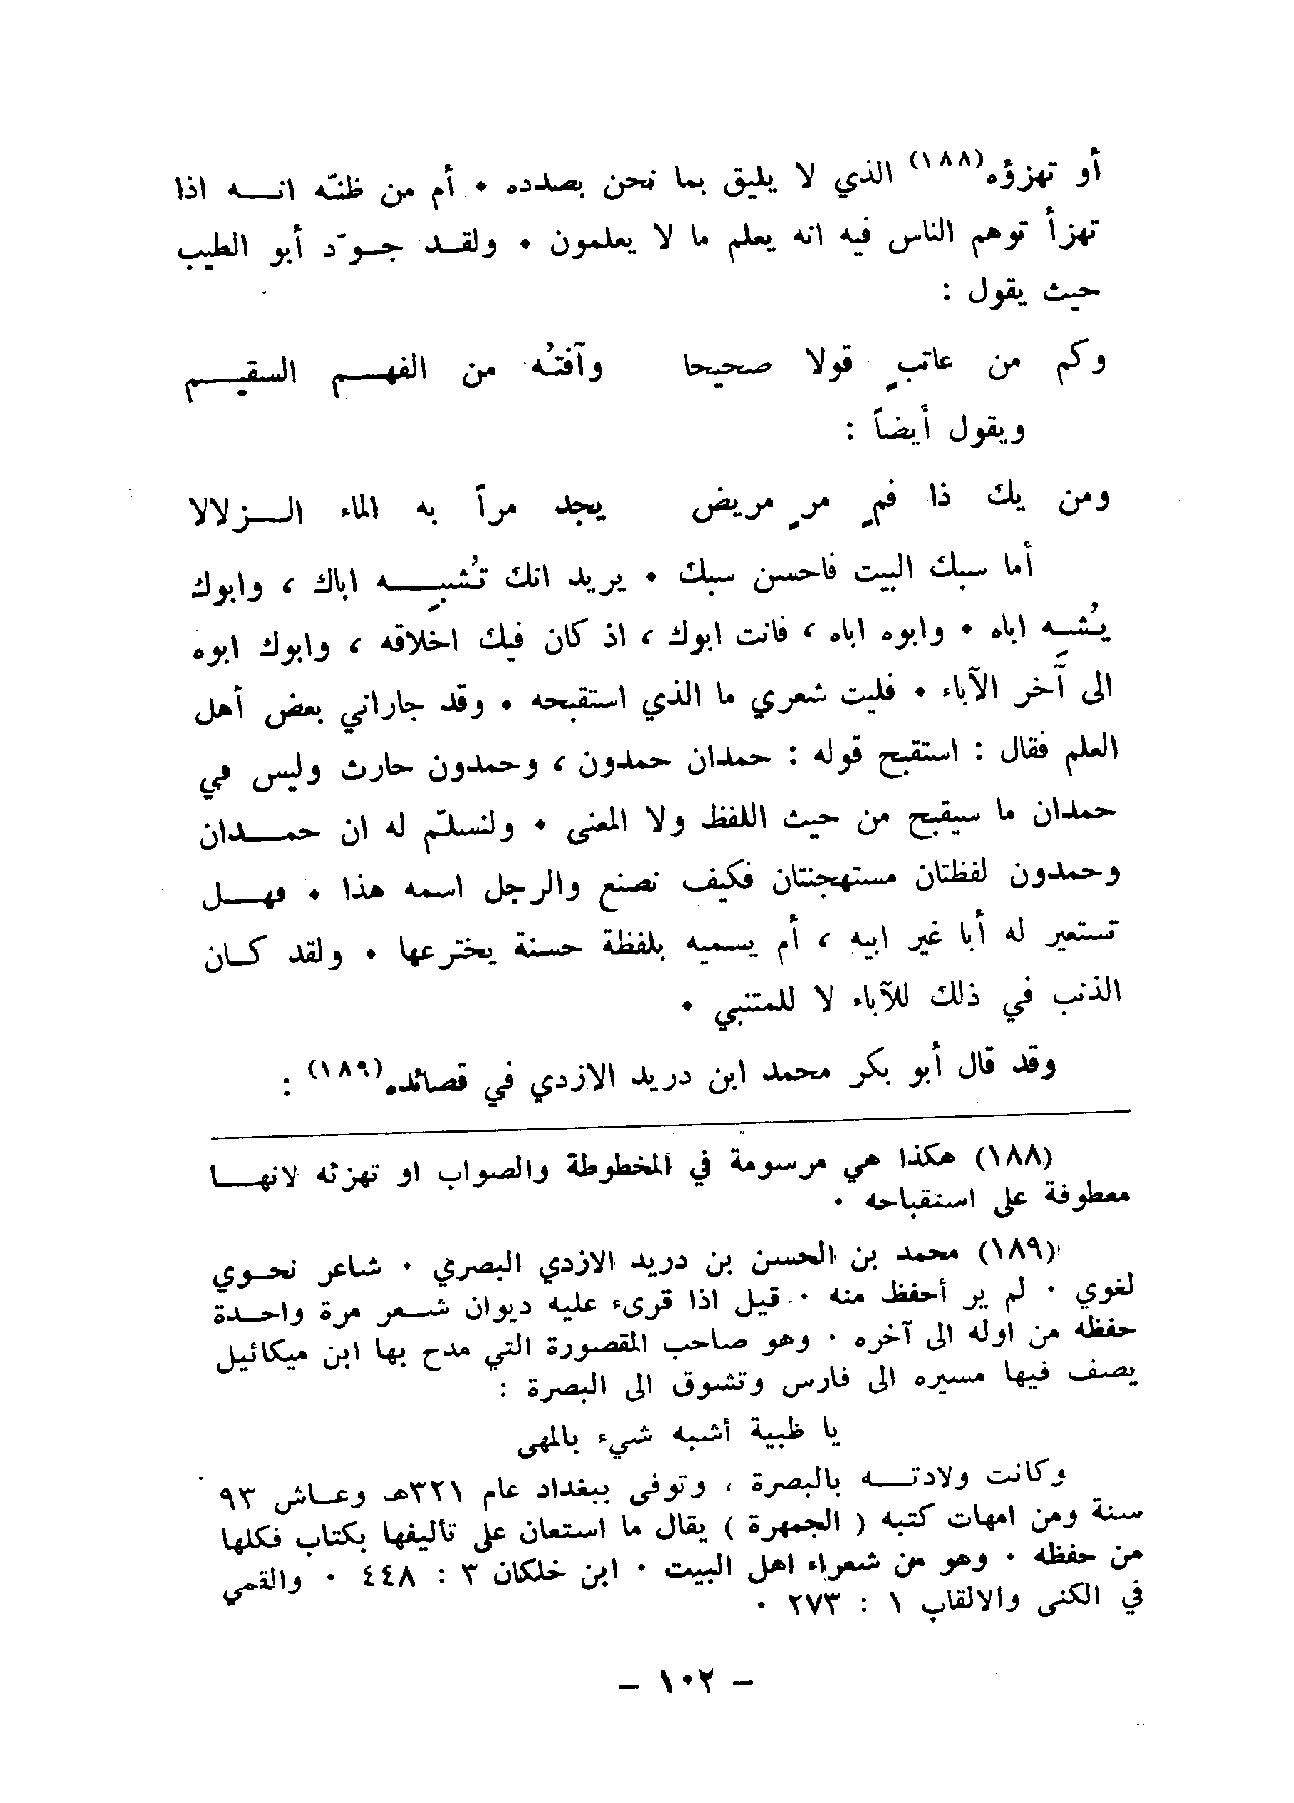 أو تهزؤه(١٨٨) الذي لا يليق بما نحن بصدده ٠ أم من ظنّه انــه اذا
تهزأ توهم الناس فيه انه يعلم ما لا يعلمون ٠ ولقـد جـوّد أبو الطيب
حيث يقول :
وكم من عاتبٍ قولا صحيحا وآفتُه من الفهــم السقيــم
ويقول أيضاً :
ومن يك ذا فمٍ مرٍ مريض يجد مرآ به الماء الــزلالا
أما سبك البيت فاحسن سبك ٠ يريد انك تُشبِــه اباك ، وابوك
يُشبِه اباه ٠ وابوه اباه ، فانت ابوك ، اذ كان فيك اخلاقه ، وابوك ابوه
الى آخر الآباء ٠ فليت شعري ما الذي استقبحه ٠ وقد جاراني بعض أهل
العلم فقال : استقبح قوله : حمدان حمدون ، وحمدون حارث وليس في
حمدان ما سيقبح من حيث اللفظ ولا المعنى ٠ ولنسلّم له ان حمــدان
وحمدون لفظتان مستهجنتان فكيف نصنع والرجل اسمه هذا ٠ فهــل
تستعير له أبا غير ابيه ، أم يسميه بلفظة حسنة يخترعها ٠ ولقد كـان
الذنب في ذلك للآباء لا للمتنبي ٠
وقد قال أبو بكر محمد ابن دريد الازدي في قصائده(١٨٩) :
(١٨٨) هكذا هي مرسومة في المخطوطة والصواب او تهزئه لانهــا
معطوفة على استقباحه ٠
(١٨٩) محمد بن الحسن بن دريد الازدي البصري ٠ شاعر نحـوي
لغوي ٠ لم ير أحفظ منه ٠ قيل اذا قرىء عليه ديوان شـعر مرة واحـدة
حفظه من اوله الى آخره ٠ وهو صاحب المقصورة التي مدح بها ابن ميكائيل
يصف فيها مسيره الى فارس وتشوق الى البصرة :
يا ظبية أشبه شيء بالمهى
وكانت ولادتــه بالبصرة ، وتوفى ببغداد عام ٣٢١هـ وعـاش ٩٣
سنة ومن امهات كتبه ( الجمهرة ) يقال ما استعان على تأليفها بكتاب فكلها
من حفظه ٠ وهو من شعراء اهل البيت ٠ ابن خلكان ٣ : ٤٤٨ ٠ والقمي
في الكنى والالقاب ١ : ٢٧٣ ٠
– ١٠٢ –